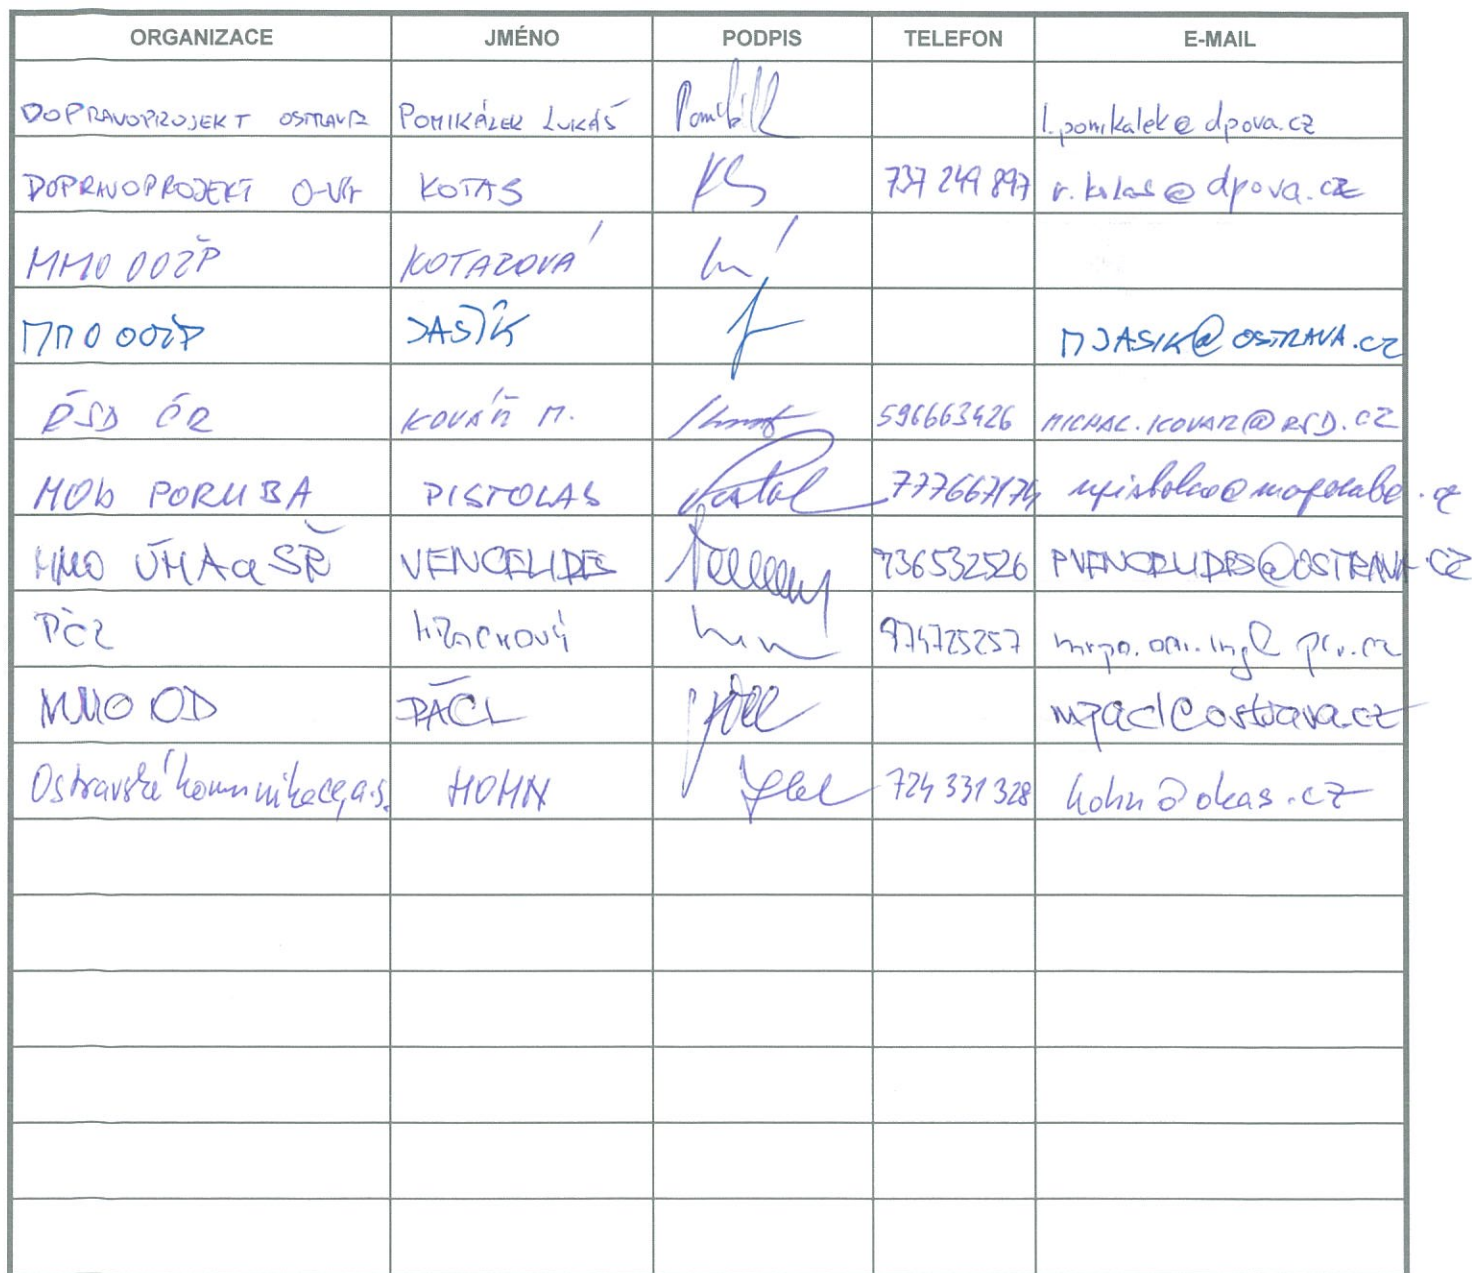 ORGANIZACE JMÉNO PODPIS TELEFON E-MAIL
DOPRAVOPROJEKT OSTRAVA POMIKÁLEK LUKÁŠ l.pomikalek@dpova.cz
DOPRAVOPROJEKT O-VA KOTAS 737 249 897 r.kotas@dpova.cz
MMO OOŽP
MMO OOŽP JAŠÍK MJASIK@OSTRAVA.CZ
ŘSD ČR KOVÁŘ M. 596663426 MICHAL.KOVAR@RSD.CZ
MOb PORUBA PISTOLAS
MMO ÚHAaSŘ VENCELIDES 736532526 PVENCELIDES@OSTRAVA.CZ
PČR 974725257
MMO OD PÁCL mpacl@ostrava.cz
Ostravské komunikace, a.s. HOHN 724 331 328 hohn@okas.cz